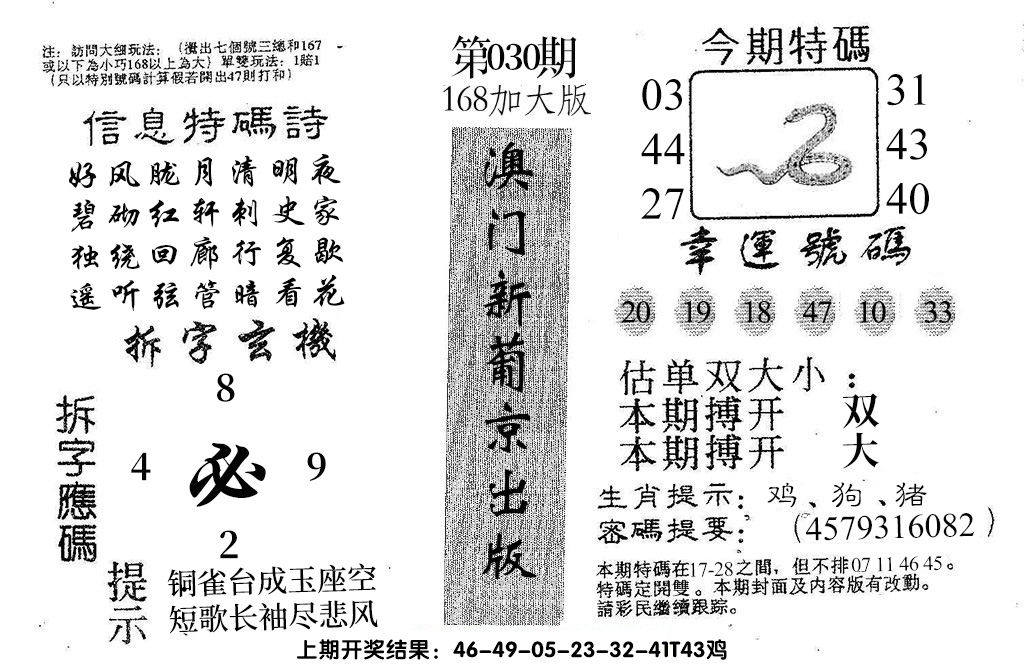 注：訪問大细玩法：（攪出七個號三總和167
或以下為小巧168以上為大）單雙玩法：1賠1
（只以特別號碼計算假若開出47則打和）
信息特碼詩
好风胧月清明夜
碧砌红轩刺史家
独绕回廊行复歇
遥听弦管暗看花
拆字玄機
拆字應碼
8
4 必 9
2
提示
铜雀台成玉座空
短歌长袖尽悲风
第030期
168加大版
澳门新葡京出版
今期特碼
03 31
44 43
27 40
幸運號碼
20 19 18 47 10 33
估单双大小：
本期搏开 双
本期搏开 大
生肖提示：鸡、狗、猪
密碼提要：（4579316082）
本期特碼在17-28之間，但不排07 11 46 45。
特碼定開雙。本期封面及内容版有改動。
請彩民繼續跟踪。
上期开奖结果：46-49-05-23-32-41T43鸡